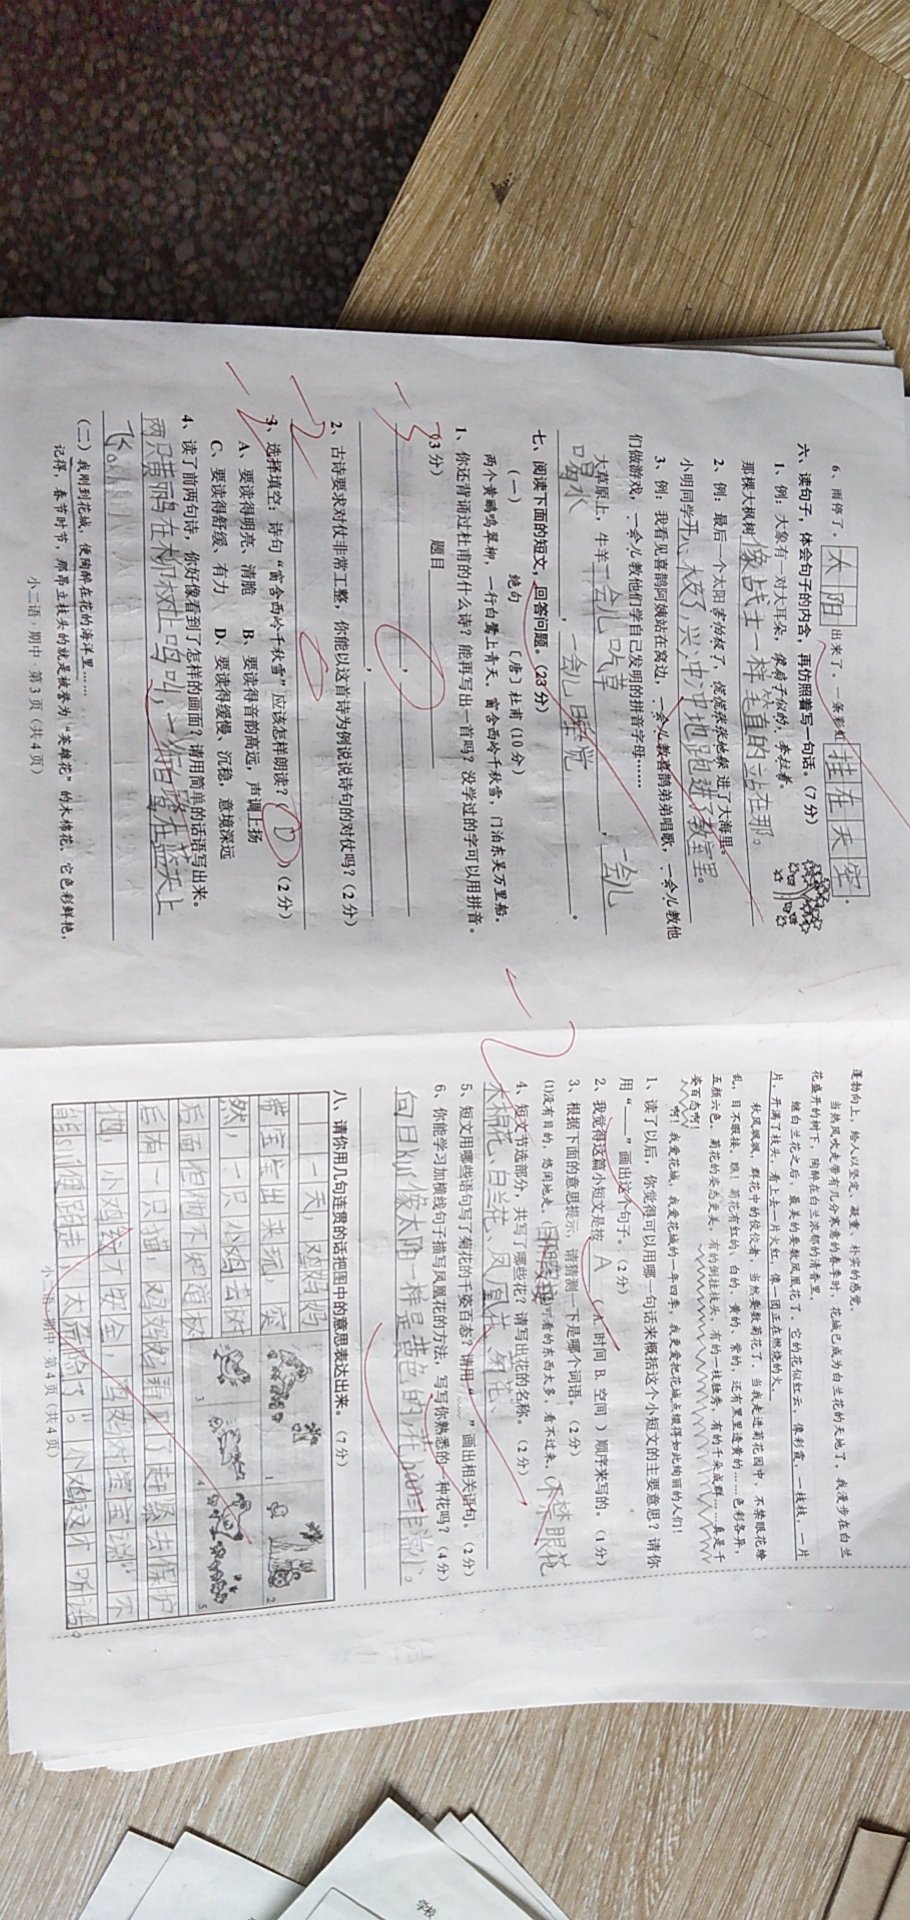 6、雨停了，太阳出来了，一条彩虹挂在天空。
六、读句子，体会句子的内含，再仿照着写一句话。（7分）
1、例：大象有一对大耳朵，像扇子似的，耷拉着。
那棵大枫树像战士一样笔直的立在那。
2、例：最后一个太阳害怕极了，慌慌张张地躲进了大海里。
小明同学开心极了，兴冲冲地跑进了教室里。
3、例：我看见喜鹊阿姨站在窝边，一会儿教喜鹊弟弟唱歌，一会儿教他
们做游戏，一会儿教他们学自己发明的拼音字母……
大草原上，牛羊一会儿吃草，一会儿
喝水，一会儿睡觉。
七、阅读下面的短文，回答问题。（23分）
（一） 绝句 ［唐］杜甫（10分）
两个黄鹂鸣翠柳，一行白鹭上青天。窗含西岭千秋雪，门泊东吴万里船。
1、你还背诵过杜甫的什么诗？能再写出一首吗？没学过的字可以用拼音。
（3分） 题目
2、古诗要求对仗非常工整，你能以这首诗为例说说诗句的对仗吗？（2分）
3、选择填空：诗句“窗含西岭千秋雪”应该怎样朗读？（D）（2分）
A、要读得明亮、清脆 B、要读得音韵高远，声调上扬
C、要读得舒缓、有力 D、要读得缓慢、沉稳，意境深远
4、读了前两句诗，你好像看到了怎样的画面？请用简单的话语写出来。
两只黄鹂鸟在柳树上鸣叫，一行白鹭在蓝天上
飞
（二）我刚到花城，便陶醉在花的海洋里……
记得，春节时节，那昂立枝头的就是被誉为“英雄花”的木棉花，它色彩鲜艳，
小二语·期中·第3页（共4页）
蓬勃向上，给人以坚定、凝重、朴实的感觉。
当热风吹走带有几分寒意的春季时，花城已成为白兰花的天地了。我漫步在白兰
花盛开的树下，陶醉在白兰浓郁的清香里。
继白兰花之后，最美的要数凤凰花了。它的花似红云，像彩霞，一枝枝，一片
片，开满了枝头，看上去一片火红，像一团正在燃烧的火。
秋风飒飒，群花中的佼佼者，当然要数菊花了。当我走进菊花园中，不禁眼花缭
乱，目不暇接。瞧！菊花有红的、白的、黄的、紫的，还有黑里透黄的……色彩各异，
五颜六色。菊花的姿态更美，有的倒挂枝头，有的一枝独秀，有的千朵成群……真是千
姿百态啊！
啊！我爱花城，我爱花城的一年四季，我更爱把花城点缀得如此绚丽的人们！
1、读了以后，你觉得可以用哪一句话来概括这个小短文的主要意思？请你
用“——”画出这个句子。（2分）
2、我觉得这篇小短文是按 A （A 时间 B.空间 ）顺序来写的。（1分）
3、根据下面的意思提示，请猜测一下是哪个词语。（2分）
4、短文节选部分，共写了哪些花？请写出花的名称。（2分）
木棉花、白兰花、凤凰花、菊花、
5、短文用哪些语句写了菊花的千姿百态？请用“﹏﹏”画出相关语句。（2分）
6、你能学习加横线句子描写凤凰花的方法，写写你熟悉的一种花吗？（4分）
八、请你用几句连贯的话把图中的意思表达出来。（7分）
一天，鸡妈妈
带宝宝出来玩，突
然，一只小鸡去树
后面但他不知道树
后有一只猫，鸡妈妈看见了赶紧去保护
他，小鸡才安全，鸡妈对宝宝说“不
1
2
3
4
5
小二语·期中·第4页（共4页）
学校